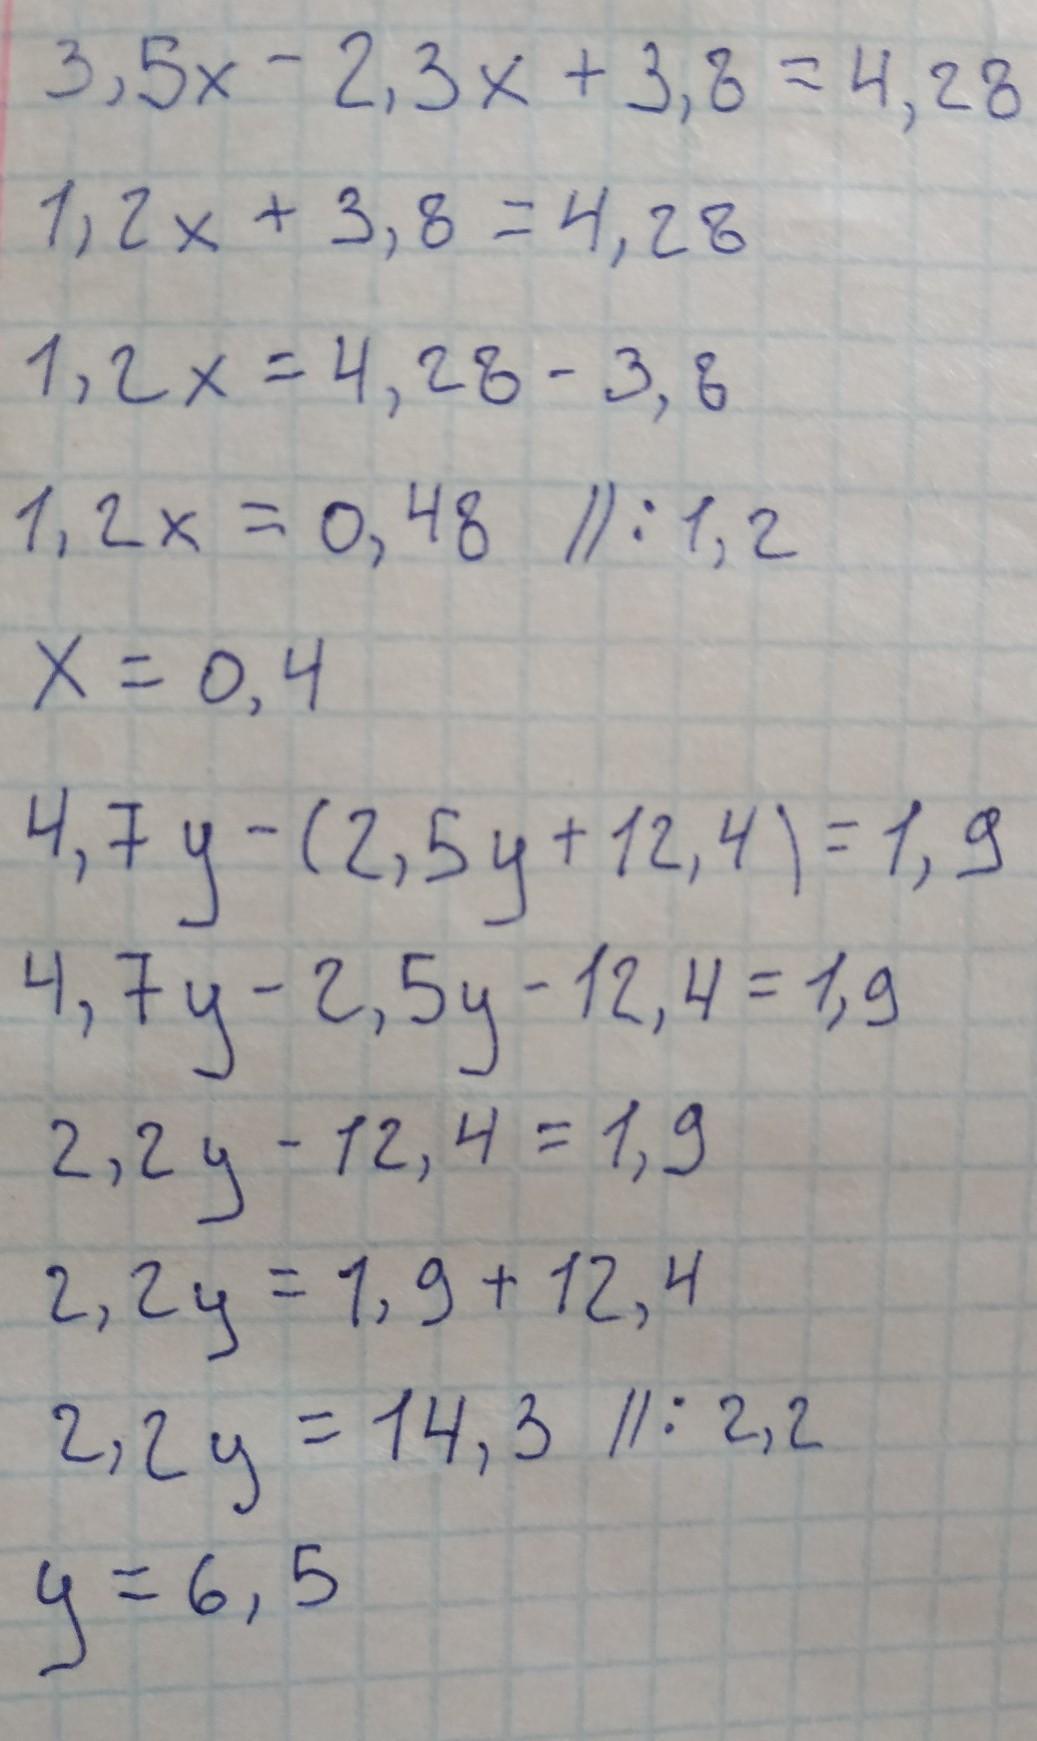 3,5x - 2,3x + 3,8 = 4,28
1,2x + 3,8 = 4,28
1,2x = 4,28 - 3,8
1,2x = 0,48 //:1,2
x = 0,4
4,7y - (2,5y + 12,4) = 1,9
4,7y - 2,5y - 12,4 = 1,9
2,2y - 12,4 = 1,9
2,2y = 1,9 + 12,4
2,2y = 14,3 //: 2,2
y = 6,5